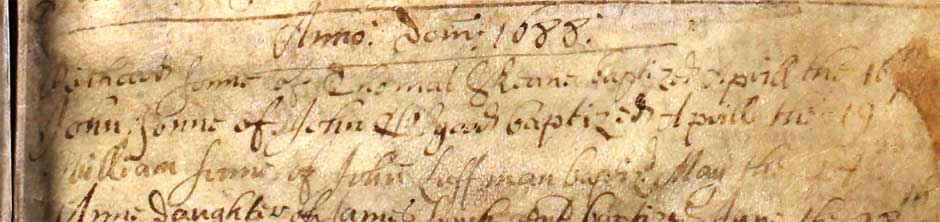 Anno: Dom: 1688:
Richard sonne of Thomas Keane baptized Aprill the 16
John sonne of John Osgood baptized Aprill the 19
William sonne of John Loffman baptized May the
Anne daughter of James baptized June the